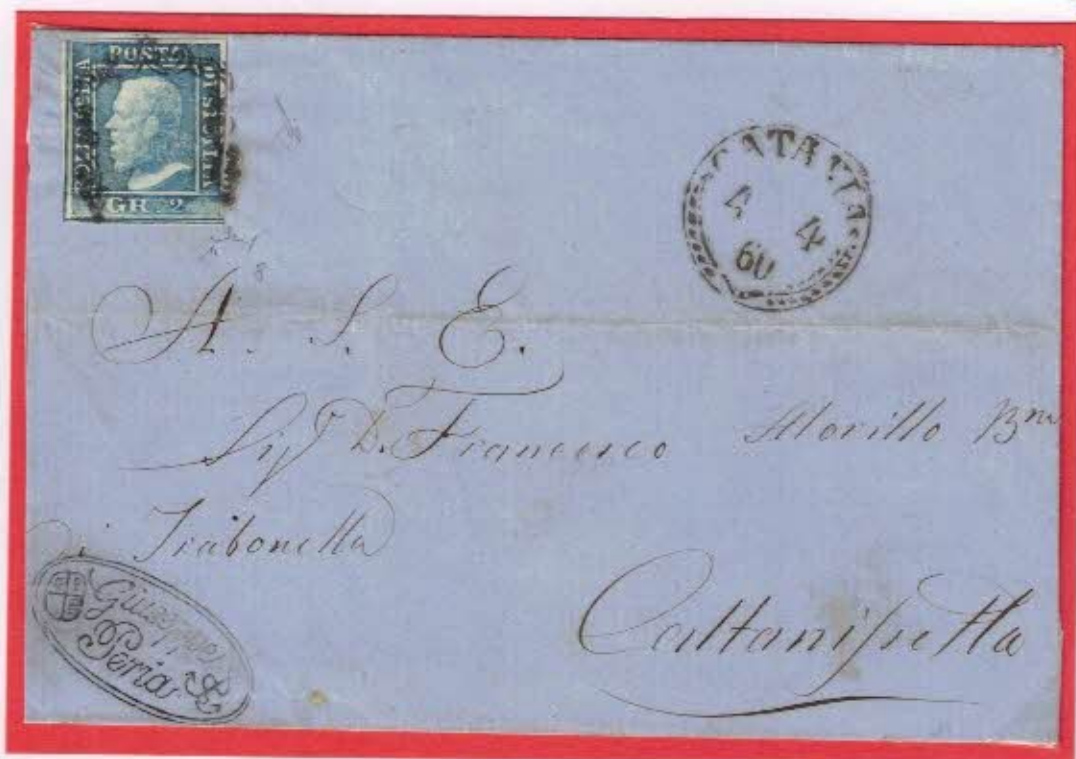 BOLLO DELLA
POSTA
DI SICILIA
GR. 2
CATANIA
4 4
60
A. S. E.
Sig.r D. Francesco Morillo Bne
di Trabonella
Caltanissetta
Giuseppe
Peria